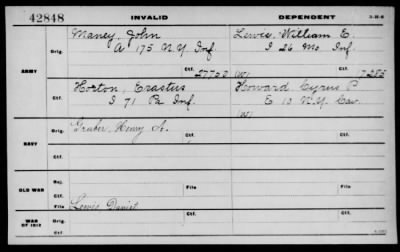 42848 INVALID DEPENDENT 3-1518
ARMY Orig. Maney, John Lewis, William E.
A 175 N.Y. Inf I 26 Mo Inf.
Ctf. 27722 (W) Ctf. 7285
Ctf. Horton, Erastus Howard Cyrus P
I 71 Pa Inf. E 10 N.Y. Cav.
(W)
NAVY Orig. Gruber, Henry A.
Ctf. Ctf.
Ctf.
OLD WAR Rej. File File
Ctf.
WAR OF 1812 Orig. Lewis Daniel
Ctf. Ctf.
Ctf.